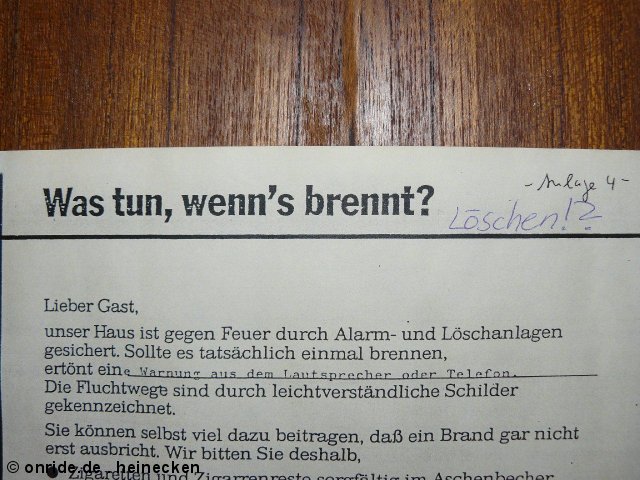 - Anlage 4 -
Was tun, wenn's brennt? Löschen!?
Lieber Gast,
unser Haus ist gegen Feuer durch Alarm- und Löschanlagen
gesichert. Sollte es tatsächlich einmal brennen,
ertönt eine Warnung aus dem Lautsprecher oder Telefon.
Die Fluchtwege sind durch leichtverständliche Schilder
gekennzeichnet.
Sie können selbst viel dazu beitragen, daß ein Brand gar nicht
erst ausbricht. Wir bitten Sie deshalb,
● Zigaretten und Zigarrenreste sorgfältig im Aschenbecher
© onride.de - heinecken